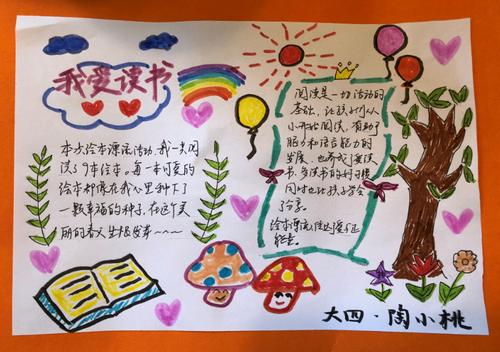 我爱读书
本次绘本漂流活动,我一共阅
读了9本绘本,每一本可爱的
绘本都像在我心里种下了
一颗幸福的种子,在这个美
丽的春天生根发芽~~~
阅读是一切活动的
基础,让孩子们从
小开始阅读,有助于
脑力和语言能力的
发展,也养成了爱读
书多读书的好习惯
同时也让孩子学会
了分享。
绘本漂流
大四·陶小桃